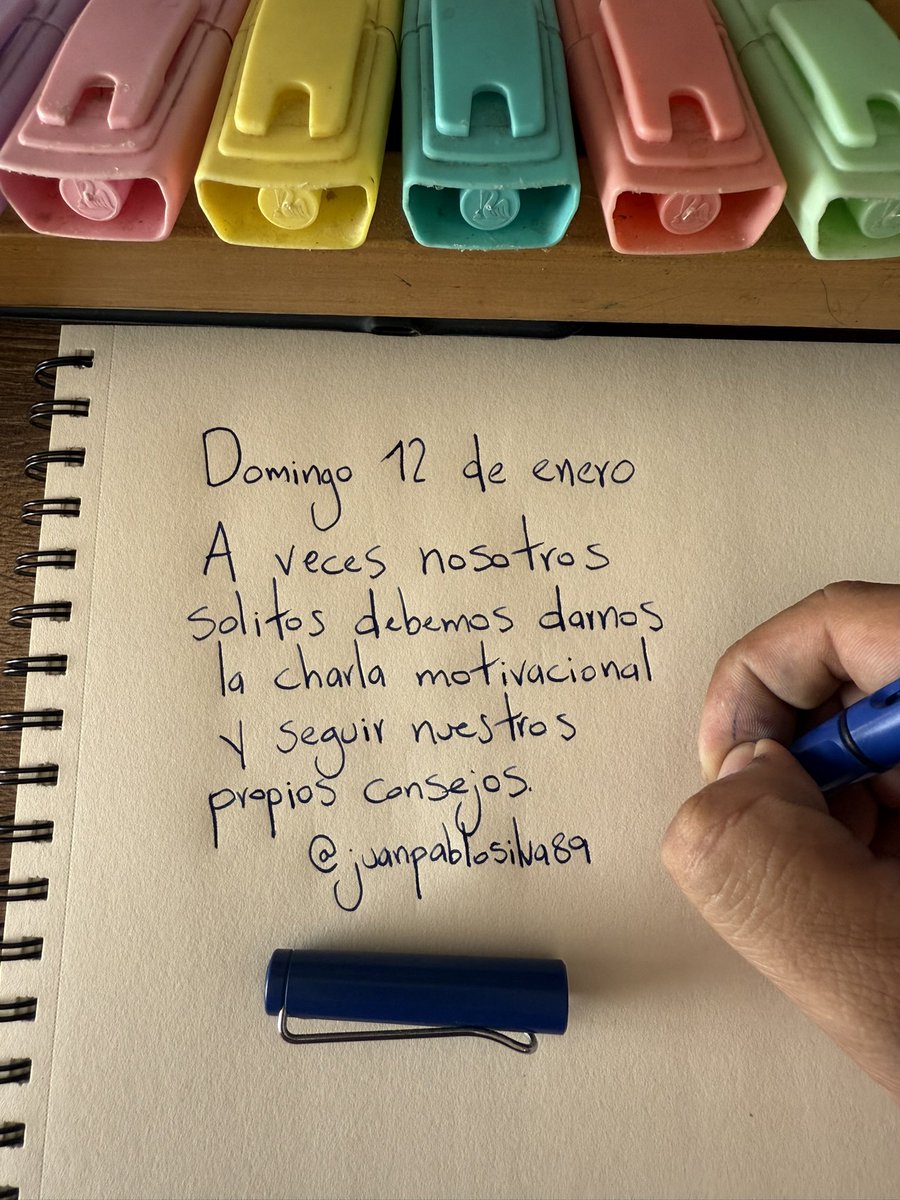 Domingo 12 de enero
A veces nosotros
solitos debemos darnos
la charla motivacional
y seguir nuestros
propios consejos.
@juanpablosilva89